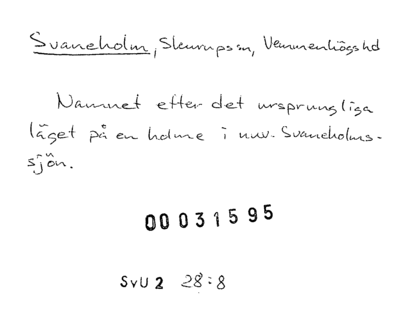 Svaneholm, Skurups sn, Vemmenhögs hd
Namnet efter det ursprungliga
läget på en holme i nuv. Svaneholms-
sjön.
00031595
SvU 2 28:8